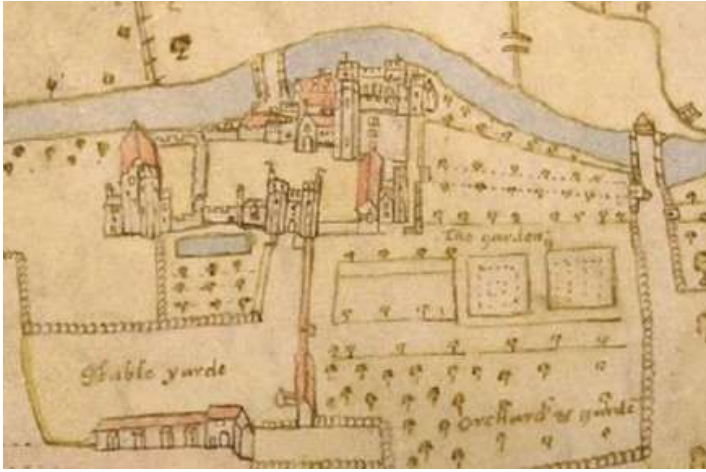 The garden
Stable yarde
Orchard yarde